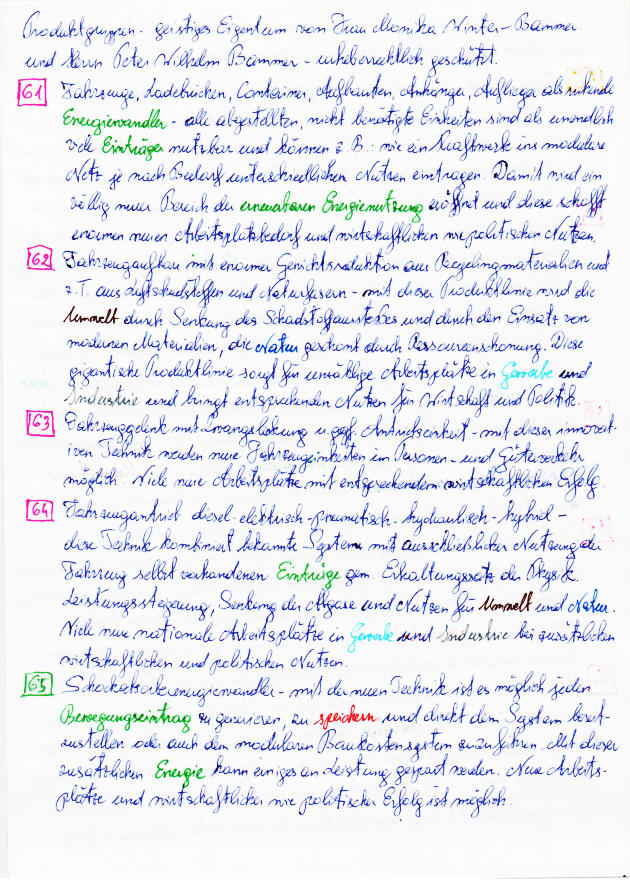 Produktgruppen - geistiges Eigentum von Frau Monika Winter-Bammer
und Herrn Peter Wilhelm Bammer - urheberrechtlich geschützt.
61 Fahrzeuge, Ladebrücken, Container, Aufbauten, Anhänger, Auflieger als ruhende
Energiewandler - alle abgestellten, nicht benötigte Einheiten sind als unendlich
viele Einträger nutzbar und können z.B. wie ein Kraftwerk ins modulare
Netz je nach Bedarf unterschiedlichen Nutzen eintragen. Damit wird ein
völlig neuer Bereich der erneuerbaren Energienutzung eröffnet und diese schafft
enormen neuen Arbeitsplatzbedarf und wirtschaftlichen wie politischen Nutzen.
62 Fahrzeugaufbau mit enormer Gewichtsreduktion aus Recyclingmaterialien und
z.T. aus Luftschadstoffen und Naturfasern - mit dieser Produktlinie wird die
Umwelt durch Senkung des Schadstoffausstoßes und durch den Einsatz von
modernen Materialien, die Natur geschont durch Ressourcenschonung. Diese
gigantische Produktlinie sorgt für unzählige Arbeitsplätze in Gewerbe und
Industrie und bringt entsprechenden Nutzen für Wirtschaft und Politik.
63 Fahrzeuggelenk mit Zwangslenkung u. ggf. Antriebseinheit - mit dieser innovat-
iven Technik werden neue Fahrzeugeinheiten im Personen- und Güterverkehr
möglich. Viele neue Arbeitsplätze mit entsprechendem wirtschaftlichen Erfolg.
64 Fahrzeugantrieb diesel-elektrisch-pneumatisch-hydraulisch-hybrid -
diese Technik kombiniert bekannte Systeme mit ausschließlicher Nutzung der
Fahrzeug selbst vorhandenen Einträge gem. Erhaltungssatz der Physik.
Leistungssteigerung, Senkung der Abgase und Nutzen für Umwelt und Natur.
Viele neue nationale Arbeitsplätze in Gewerbe und Industrie bei zusätzlichen
wirtschaftlichen und politischen Nutzen.
65 Schockabsorberenergiewandler - mit der neuen Technik ist es möglich jeden
Bewegungseintrag zu generieren, zu speichern und direkt dem System bereit-
zustellen oder auch dem modularen Baukastensystem zuzuführen. Mit dieser
zusätzlichen Energie kann einiges an Leistung gespart werden. Neue Arbeits-
plätze und wirtschaftlicher wie politischer Erfolg ist möglich.